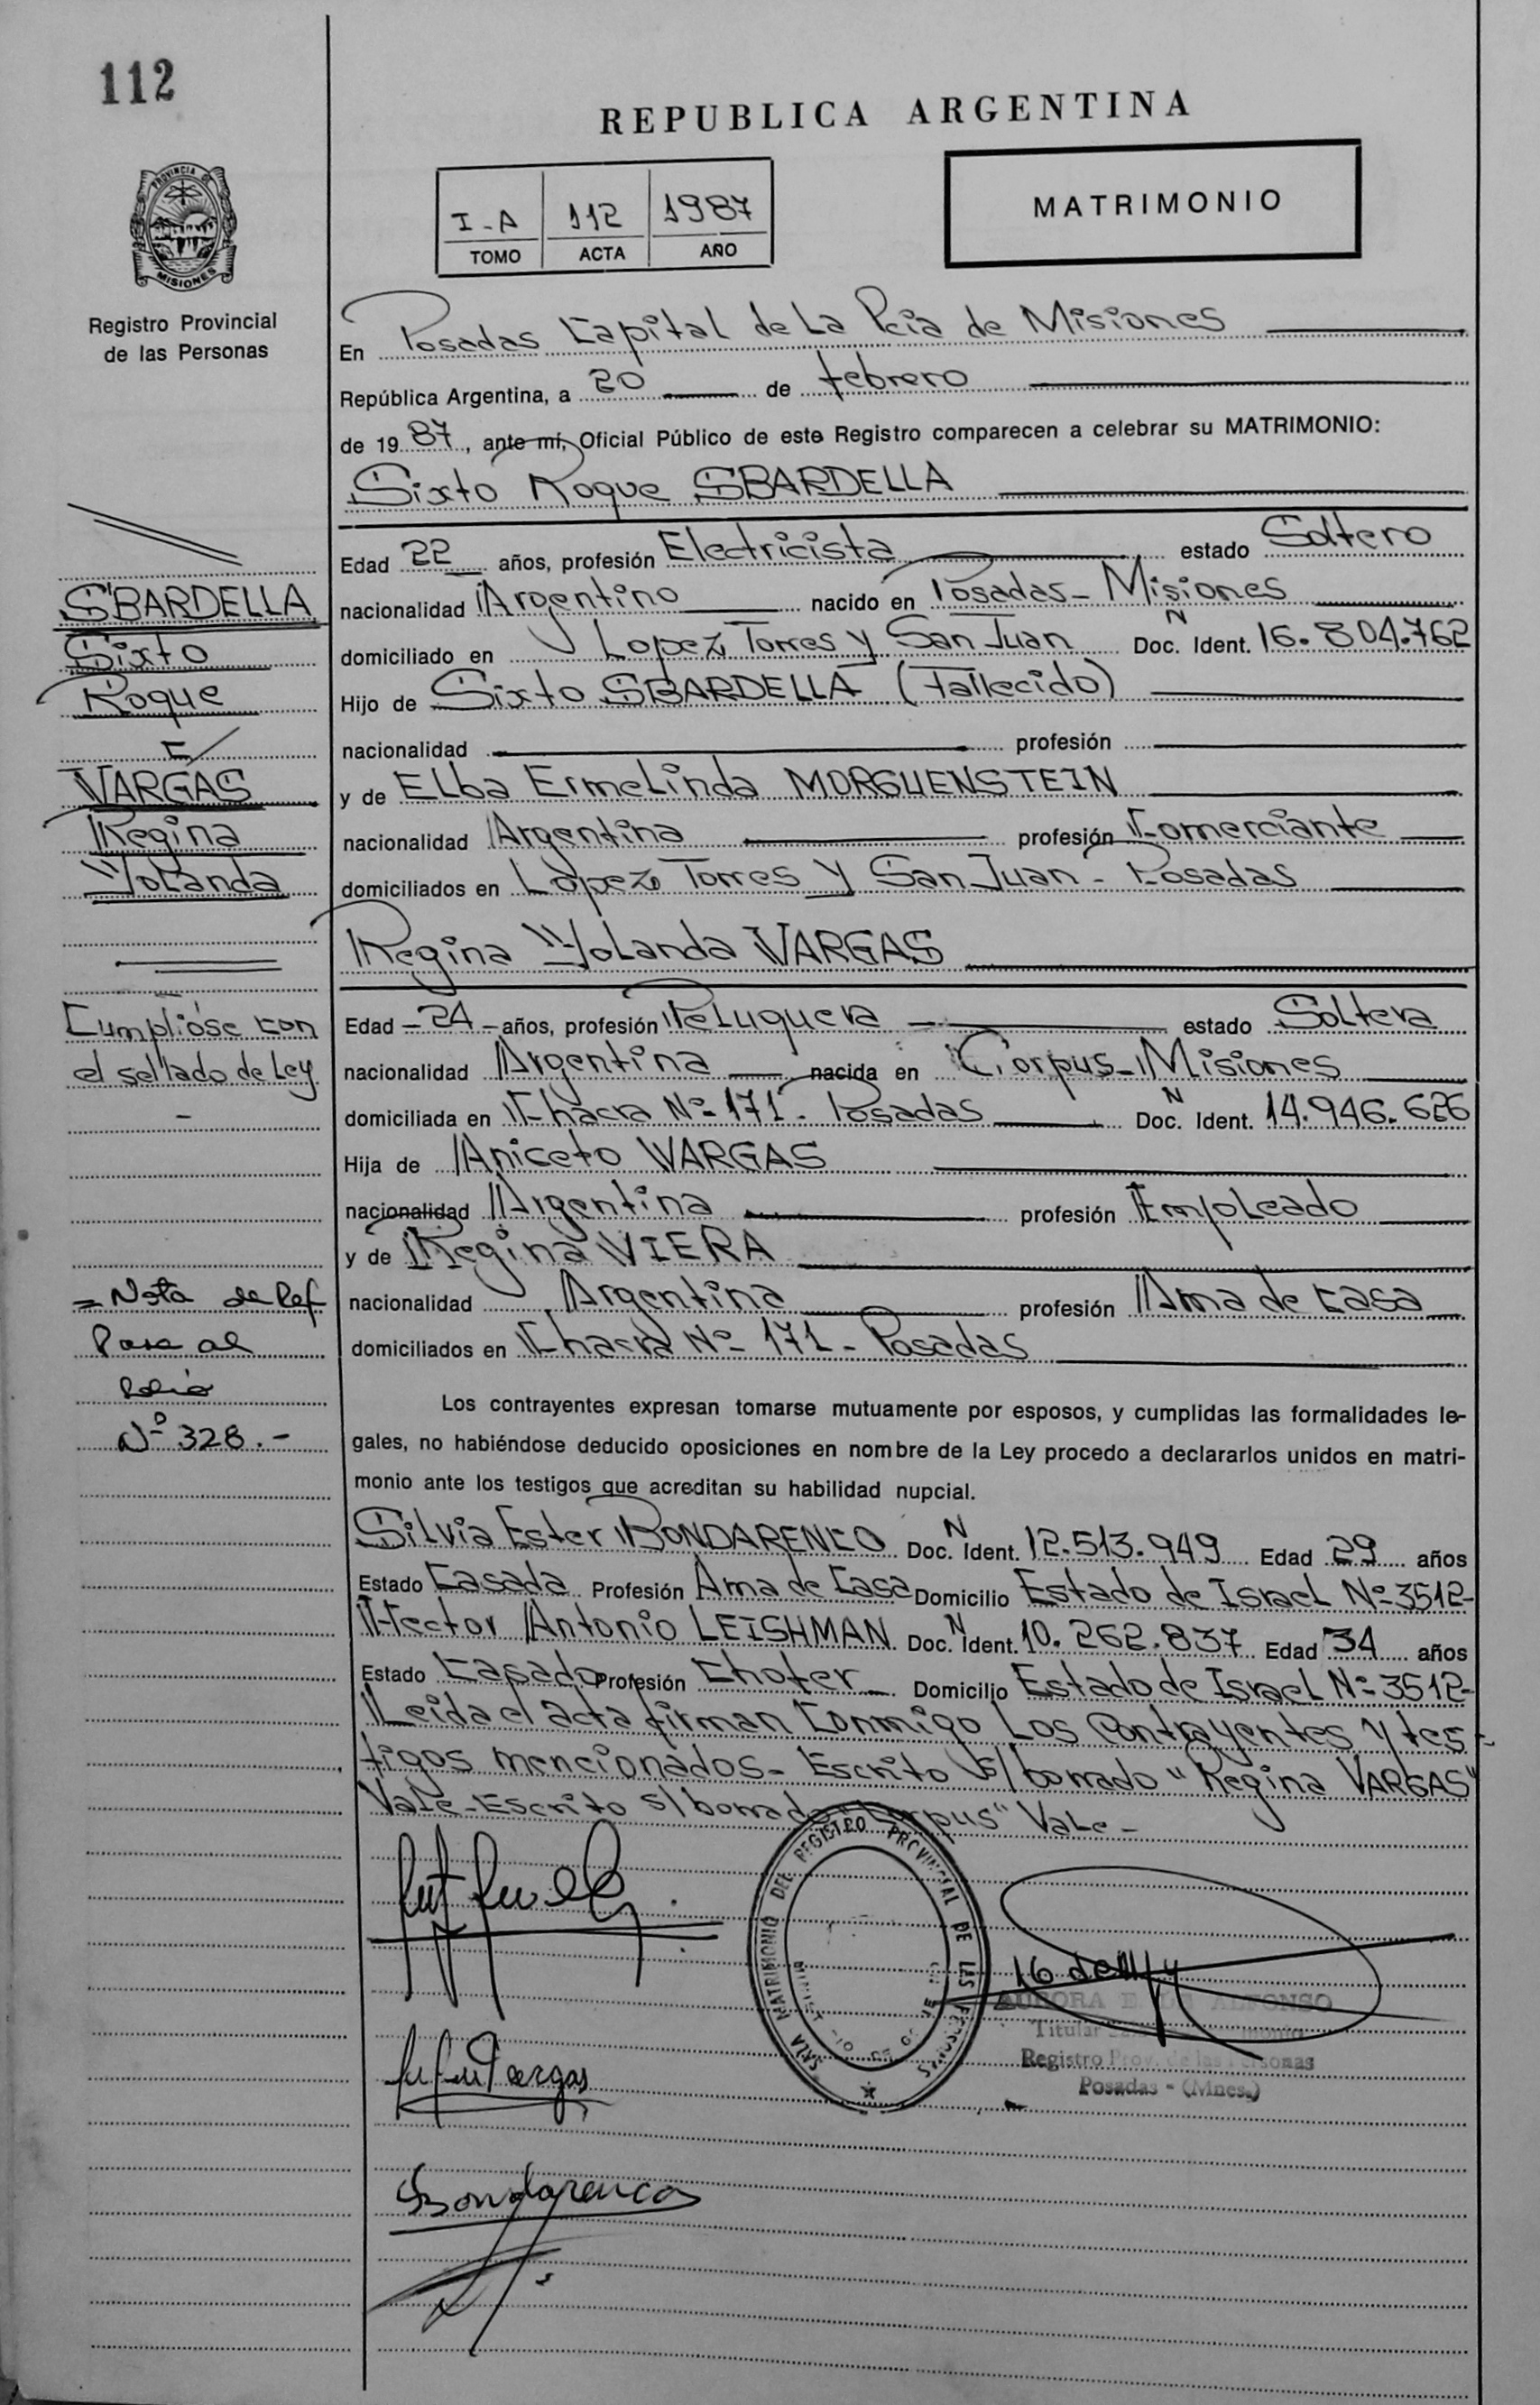 112
REPUBLICA ARGENTINA
PROVINCIA DE
MISIONES
Registro Provincial
de las Personas
I-A 112 1987
TOMO ACTA AÑO
MATRIMONIO
En Posadas Capital de La Pcia de Misiones
República Argentina, a 20 de febrero
de 19 87, ante mí, Oficial Público de este Registro comparecen a celebrar su MATRIMONIO:
Sixto Roque SBARDELLA
Edad 22 años, profesión Electricista estado Soltero
nacionalidad Argentino nacido en Posadas - Misiones
domiciliado en Lopez Torres y San Juan Doc. N Ident. 16.804.762
Hijo de Sixto SBARDELLA (fallecido)
nacionalidad profesión
y de Elba Ermelinda MORGUENSTEIN
nacionalidad Argentina profesión Comerciante
domiciliados en Lopez Torres y San Juan - Posadas
Regina Yolanda VARGAS
Edad -24- años, profesión Peluquera estado Soltera
nacionalidad Argentina nacida en Corpus - Misiones
domiciliada en Chacra Nº 171 - Posadas Doc. N Ident. 14.946.626
Hija de Aniceto VARGAS
nacionalidad Argentina profesión Empleado
y de Regina VIERA
nacionalidad Argentina profesión Ama de casa
domiciliados en Chacra Nº 171 - Posadas
Los contrayentes expresan tomarse mutuamente por esposos, y cumplidas las formalidades le-
gales, no habiéndose deducido oposiciones en nombre de la Ley procedo a declararlos unidos en matri-
monio ante los testigos que acreditan su habilidad nupcial.
Silvia Ester BONDARENCO Doc. N Ident. 12.513.949 Edad 29 años
Estado Casada Profesión Ama de Casa Domicilio Estado de Israel Nº 3512-
Hector Antonio LEISHMAN Doc. N Ident. 10.262.837 Edad 34 años
Estado Casado Profesión Chofer Domicilio Estado de Israel Nº 3512-
Leida el acta firman Conmigo Los Contrayentes y tes-
tigos mencionados - Escrito s/borrado "Regina VARGAS"
Vale - Escrito s/borrado "Corpus" Vale -
SBARDELLA
Sixto
Roque
c/
VARGAS
Regina
Yolanda
Cumplióse con
el sellado de Ley
-
= Nota de Ref.
Pasa al
folio
Nº 328.-
SALA MATRIMONIO DEL REGISTRO PROVINCIAL DE LAS PERSONAS
AURORA E. DE ALFONSO
Titular
Registro Prov. de las Personas
Posadas - (Mnes.)
Vargas
Bondarenco